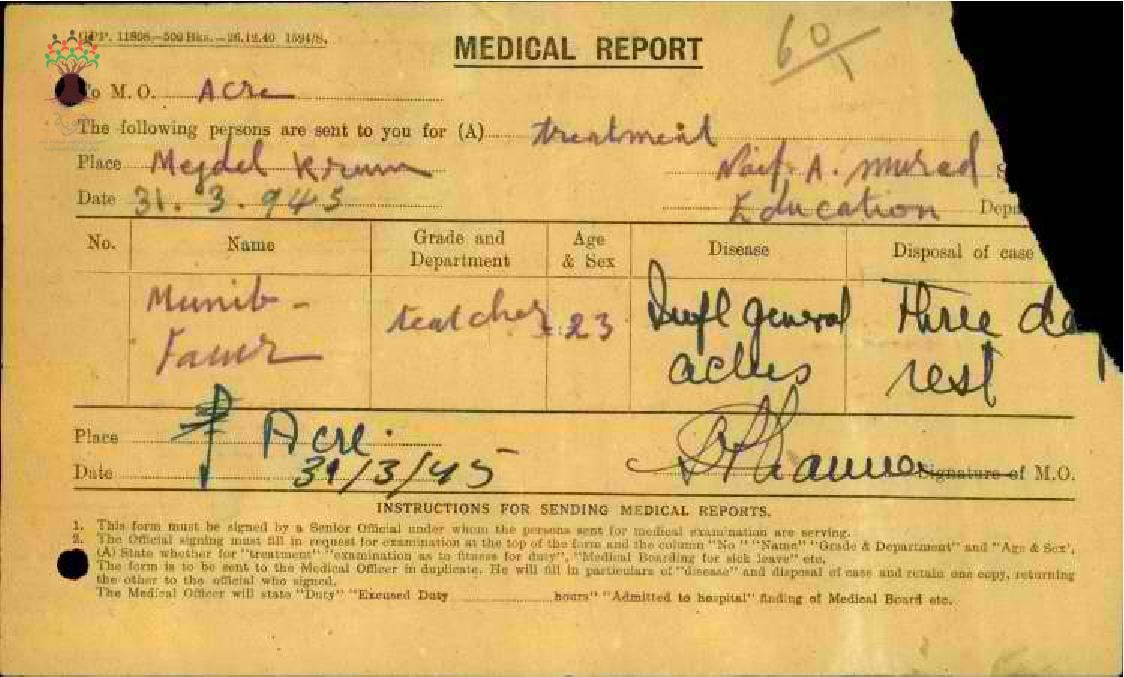 GPP. 11808—500 Bks.—26.12.40 1594/S.
60/1
MEDICAL REPORT
To M.O. Acre
The following persons are sent to you for (A) treatment
Place Mejdel Krum
Naif. A. Murad S
Date 31. 3. 945
Education Depa
No. Name Grade and Department Age & Sex Disease Disposal of case
Munib - teatcher 23 general Three da
aches rest
Place Acre.
Date 31/3/45
Signature of M.O.
INSTRUCTIONS FOR SENDING MEDICAL REPORTS.
1. This form must be signed by a Senior Official under whom the persons sent for medical examination are serving.
2. The Official signing must fill in request for examination at the top of the form and the column "No" "Name" "Grade & Department" and "Age & Sex',
(A) State whether for "treatment" "examination as to fitness for duty", "Medical Boarding for sick leave" etc.
The form is to be sent to the Medical Officer in duplicate. He will fill in particulars of "disease" and disposal of case and retain one copy, returning
the other to the official who signed.
The Medical Officer will state "Duty" "Excused Duty hours" "Admitted to hospital" finding of Medical Board etc.